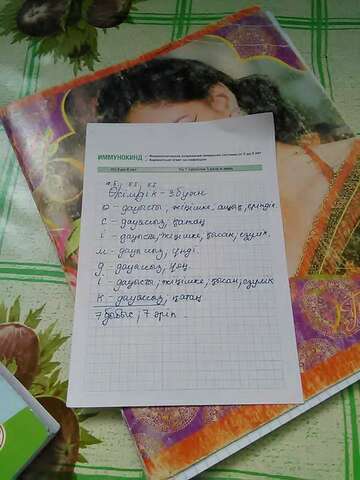 ИММУНОКИНД
Өсімдік - 3 буын
ө - дауысты, жіңішке, ашық, еріндік
с - дауыссыз, қатаң
і - дауысты, жіңішке, қысаң, езулік
м - дауыссыз, үнді
д - дауыссыз, ұяң
і - дауысты, жіңішке, қысаң, езулік
к - дауыссыз, қатаң
7 дыбыс, 7 әріп